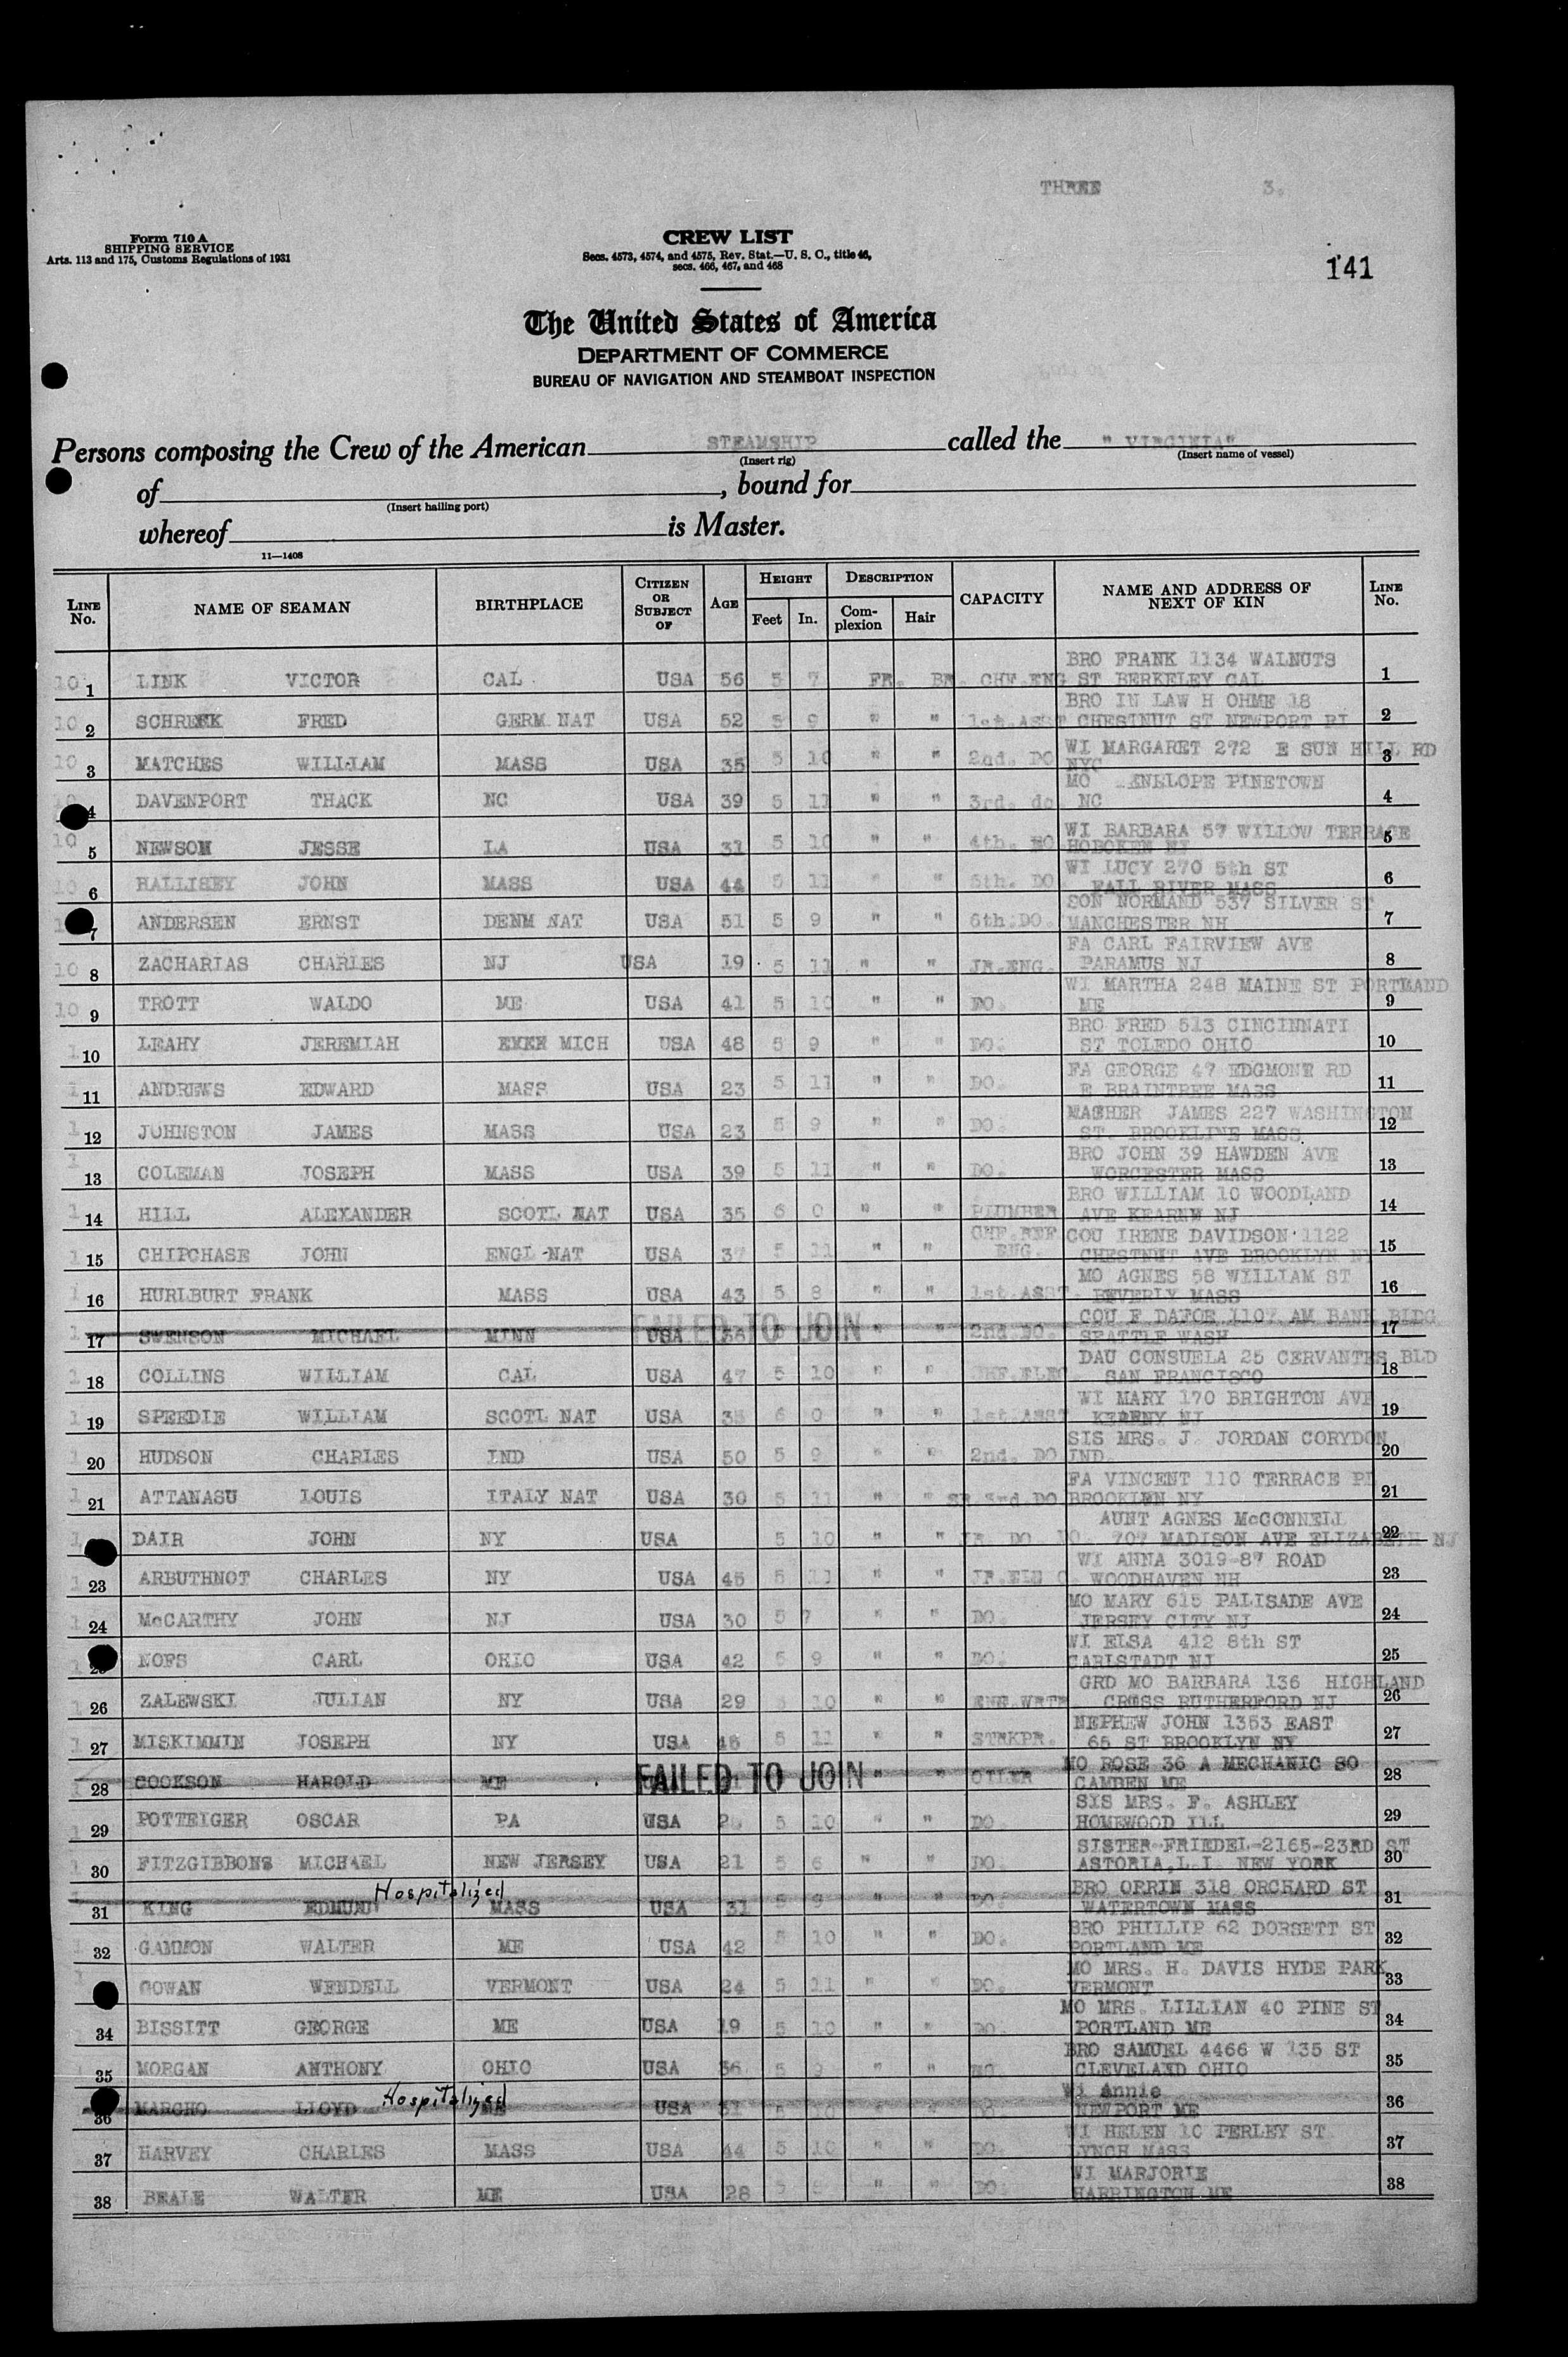 THREE 3.
Form 710 A
SHIPPING SERVICE
Arts. 113 and 175, Customs Regulations of 1931
CREW LIST
Secs. 4573, 4574, and 4575, Rev. Stat.—U. S. C., title 46,
secs. 466, 467, and 468
141
The United States of America
DEPARTMENT OF COMMERCE
BUREAU OF NAVIGATION AND STEAMBOAT INSPECTION
Persons composing the Crew of the American STEAMSHIP called the " VIRGINIA"
(Insert rig) (Insert name of vessel)
of , bound for
(Insert hailing port)
whereof is Master.
11—1408
LINE No. NAME OF SEAMAN BIRTHPLACE CITIZEN OR SUBJECT OF AGE HEIGHT Feet In. DESCRIPTION Complexion Hair CAPACITY NAME AND ADDRESS OF NEXT OF KIN LINE No.
BRO FRANK 1134 WALNUTS
10 1 LINK VICTOR CAL USA 56 5 7 FR. BR. CHF.ENG ST BERKELEY CAL 1
BRO IN LAW H OHME 18
10 2 SCHREEK FRED GERM NAT USA 52 5 9 " " 1st.ASST CHESTNUT ST NEWPORT RI 2
WI MARGARET 272 E SUN HILL RD
10 3 MATCHES WILLIAM MASS USA 35 5 10 " " 2nd. DO NYC 3
MO ENELOPE PINETOWN
4 DAVENPORT THACK NC USA 39 5 11 " " 3rd. do. NC 4
WI BARBARA 57 WILLOW TERRACE
10 5 NEWSOM JESSE LA USA 31 5 10 " " 4th. DO HOBOKEN NJ 5
WI LUCY 270 5th ST
10 6 HALLISEY JOHN MASS USA 44 5 11 " " 5th. DO FALL RIVER MASS 6
SON NORMAND 537 SILVER ST
7 ANDERSEN ERNST DENM NAT USA 51 5 9 " " 6th.DO. MANCHESTER NH 7
FA CARL FAIRVIEW AVE
10 8 ZACHARIAS CHARLES NJ USA 19 5 11 " " JR.ENG. PARAMUS NJ 8
WI MARTHA 248 MAINE ST PORTMAND
10 9 TROTT WALDO ME USA 41 5 10 " " DO. ME 9
BRO FRED 513 CINCINNATI
1 10 LEAHY JEREMIAH MICH USA 48 5 9 " " DO. ST TOLEDO OHIO 10
FA GEORGE 47 EDGMONE RD
1 11 ANDREWS EDWARD MASS USA 23 5 11 " " DO. E BRAINTREE MASS 11
JAMES 227 WASHINGTON
1 12 JOHNSTON JAMES MASS USA 23 5 9 " " DO. ST. BROOKLINE MASS. 12
BRO JOHN 39 HAWDEN AVE
1 13 COLEMAN JOSEPH MASS USA 39 5 11 " " DO. WORCESTER MASS 13
BRO WILLIAM 10 WOODLAND
1 14 HILL ALEXANDER SCOTL NAT USA 35 6 0 " " PLUMBER AVE KEARNW NJ 14
CHF.REF COU IRENE DAVIDSON 1122
1 15 CHIPCHASE JOHN ENGL NAT USA 37 5 11 " " ENG. CHESTNUT AVE BROOKLYN NY 15
MO AGNES 58 WILLIAM ST
1 16 HURLBURT FRANK MASS USA 43 5 8 " " 1st.ASST. BEVERLY MASS 16
COU F DAFOE 1107 AM BANK BLDG
1 17 SWENSON MICHAEL MINN USA FAILED TO JOIN " " 2nd.DO. SEATTLE WASH 17
DAU CONSUELA 25 CERVANTES BLD
1 18 COLLINS WILLIAM CAL USA 47 5 10 " " CHF.ELEC. SAN FRANCISCO 18
WI MARY 170 BRIGHTON AVE
1 19 SPEEDIE WILLIAM SCOTL NAT USA 35 6 0 " " 1st.ASST KEARNY NJ 19
SIS MRS. J. JORDAN CORYDON
1 20 HUDSON CHARLES IND USA 50 5 9 " " 2nd. DO IND. 20
FA VINCENT 110 TERRACE PL
1 21 ATTANASU LOUIS ITALY NAT USA 30 5 11 " " SR 3rd.DO BROOKLYN NY 21
AUNT AGNES McCONNELL
DAIR JOHN NY USA 5 10 " " JR DO DO. 707 MADISON AVE ELIZABETH NJ 22
WI ANNA 3019-87 ROAD
1 23 ARBUTHNOT CHARLES NY USA 45 5 11 " " JR.ELE C. WOODHAVEN NH 23
MO MARY 615 PALISADE AVE
1 24 McCARTHY JOHN NJ USA 30 5 7 " " DO. JERSEY CITY NJ 24
WI ELSA 412 8th ST
NOFS CARL OHIO USA 42 5 9 " " DO. CARLSTADT NJ 25
GRD MO BARBARA 136 HIGHLAND
1 26 ZALEWSKI JULIAN NY USA 29 5 10 " " ENG.WRTR CROSS RUTHERFORD NJ 26
NEPHEW JOHN 1353 EAST
1 27 MISKIMMIN JOSEPH NY USA 46 5 11 " " STRKPR. 65 ST BROOKLYN NY 27
MO ROSE 36 A MECHANIC SO
1 28 COOKSON HAROLD ME FAILED TO JOIN " " OILER CAMDEN ME 28
SIS MRS. F. ASHLEY
1 29 POTTEIGER OSCAR PA USA 5 10 " " DO. HOMEWOOD ILL 29
SISTER-FRIEDEL-2165-23RD ST
1 30 FITZGIBBONS MICHAEL NEW JERSEY USA 21 5 6 " " DO. ASTORIA,L.I. NEW YORK 30
Hospitalized BRO ORRIN 318 ORCHARD ST
31 KING EDMUND MASS USA 31 5 9 " " DO. WATERTOWN MASS 31
BRO PHILLIP 62 DORSETT ST
1 32 GAMMON WALTER ME USA 42 5 10 " " DO. PORTLAND ME 32
MO MRS. H. DAVIS HYDE PARK
GOWAN WENDELL VERMONT USA 24 5 11 " " DO. VERMONT 33
MO MRS. LILLIAN 40 PINE ST
34 BISSITT GEORGE ME USA 19 5 10 " " DO. PORTLAND ME 34
BRO SAMUEL 4466 W 135 ST
35 MORGAN ANTHONY OHIO USA 36 5 9 " " DO. CLEVELAND OHIO 35
Hospitalized Wi Annie
36 MARCHO LLOYD ME USA 31 5 10 " " DO. NEWPORT ME 36
WI HELEN 10 PERLEY ST
37 HARVEY CHARLES MASS USA 44 5 10 " " DO. LYNCH MASS 37
WI MARJORIE
38 BEALE WALTER ME USA 28 5 " " DO. HARRINGTON ME 38